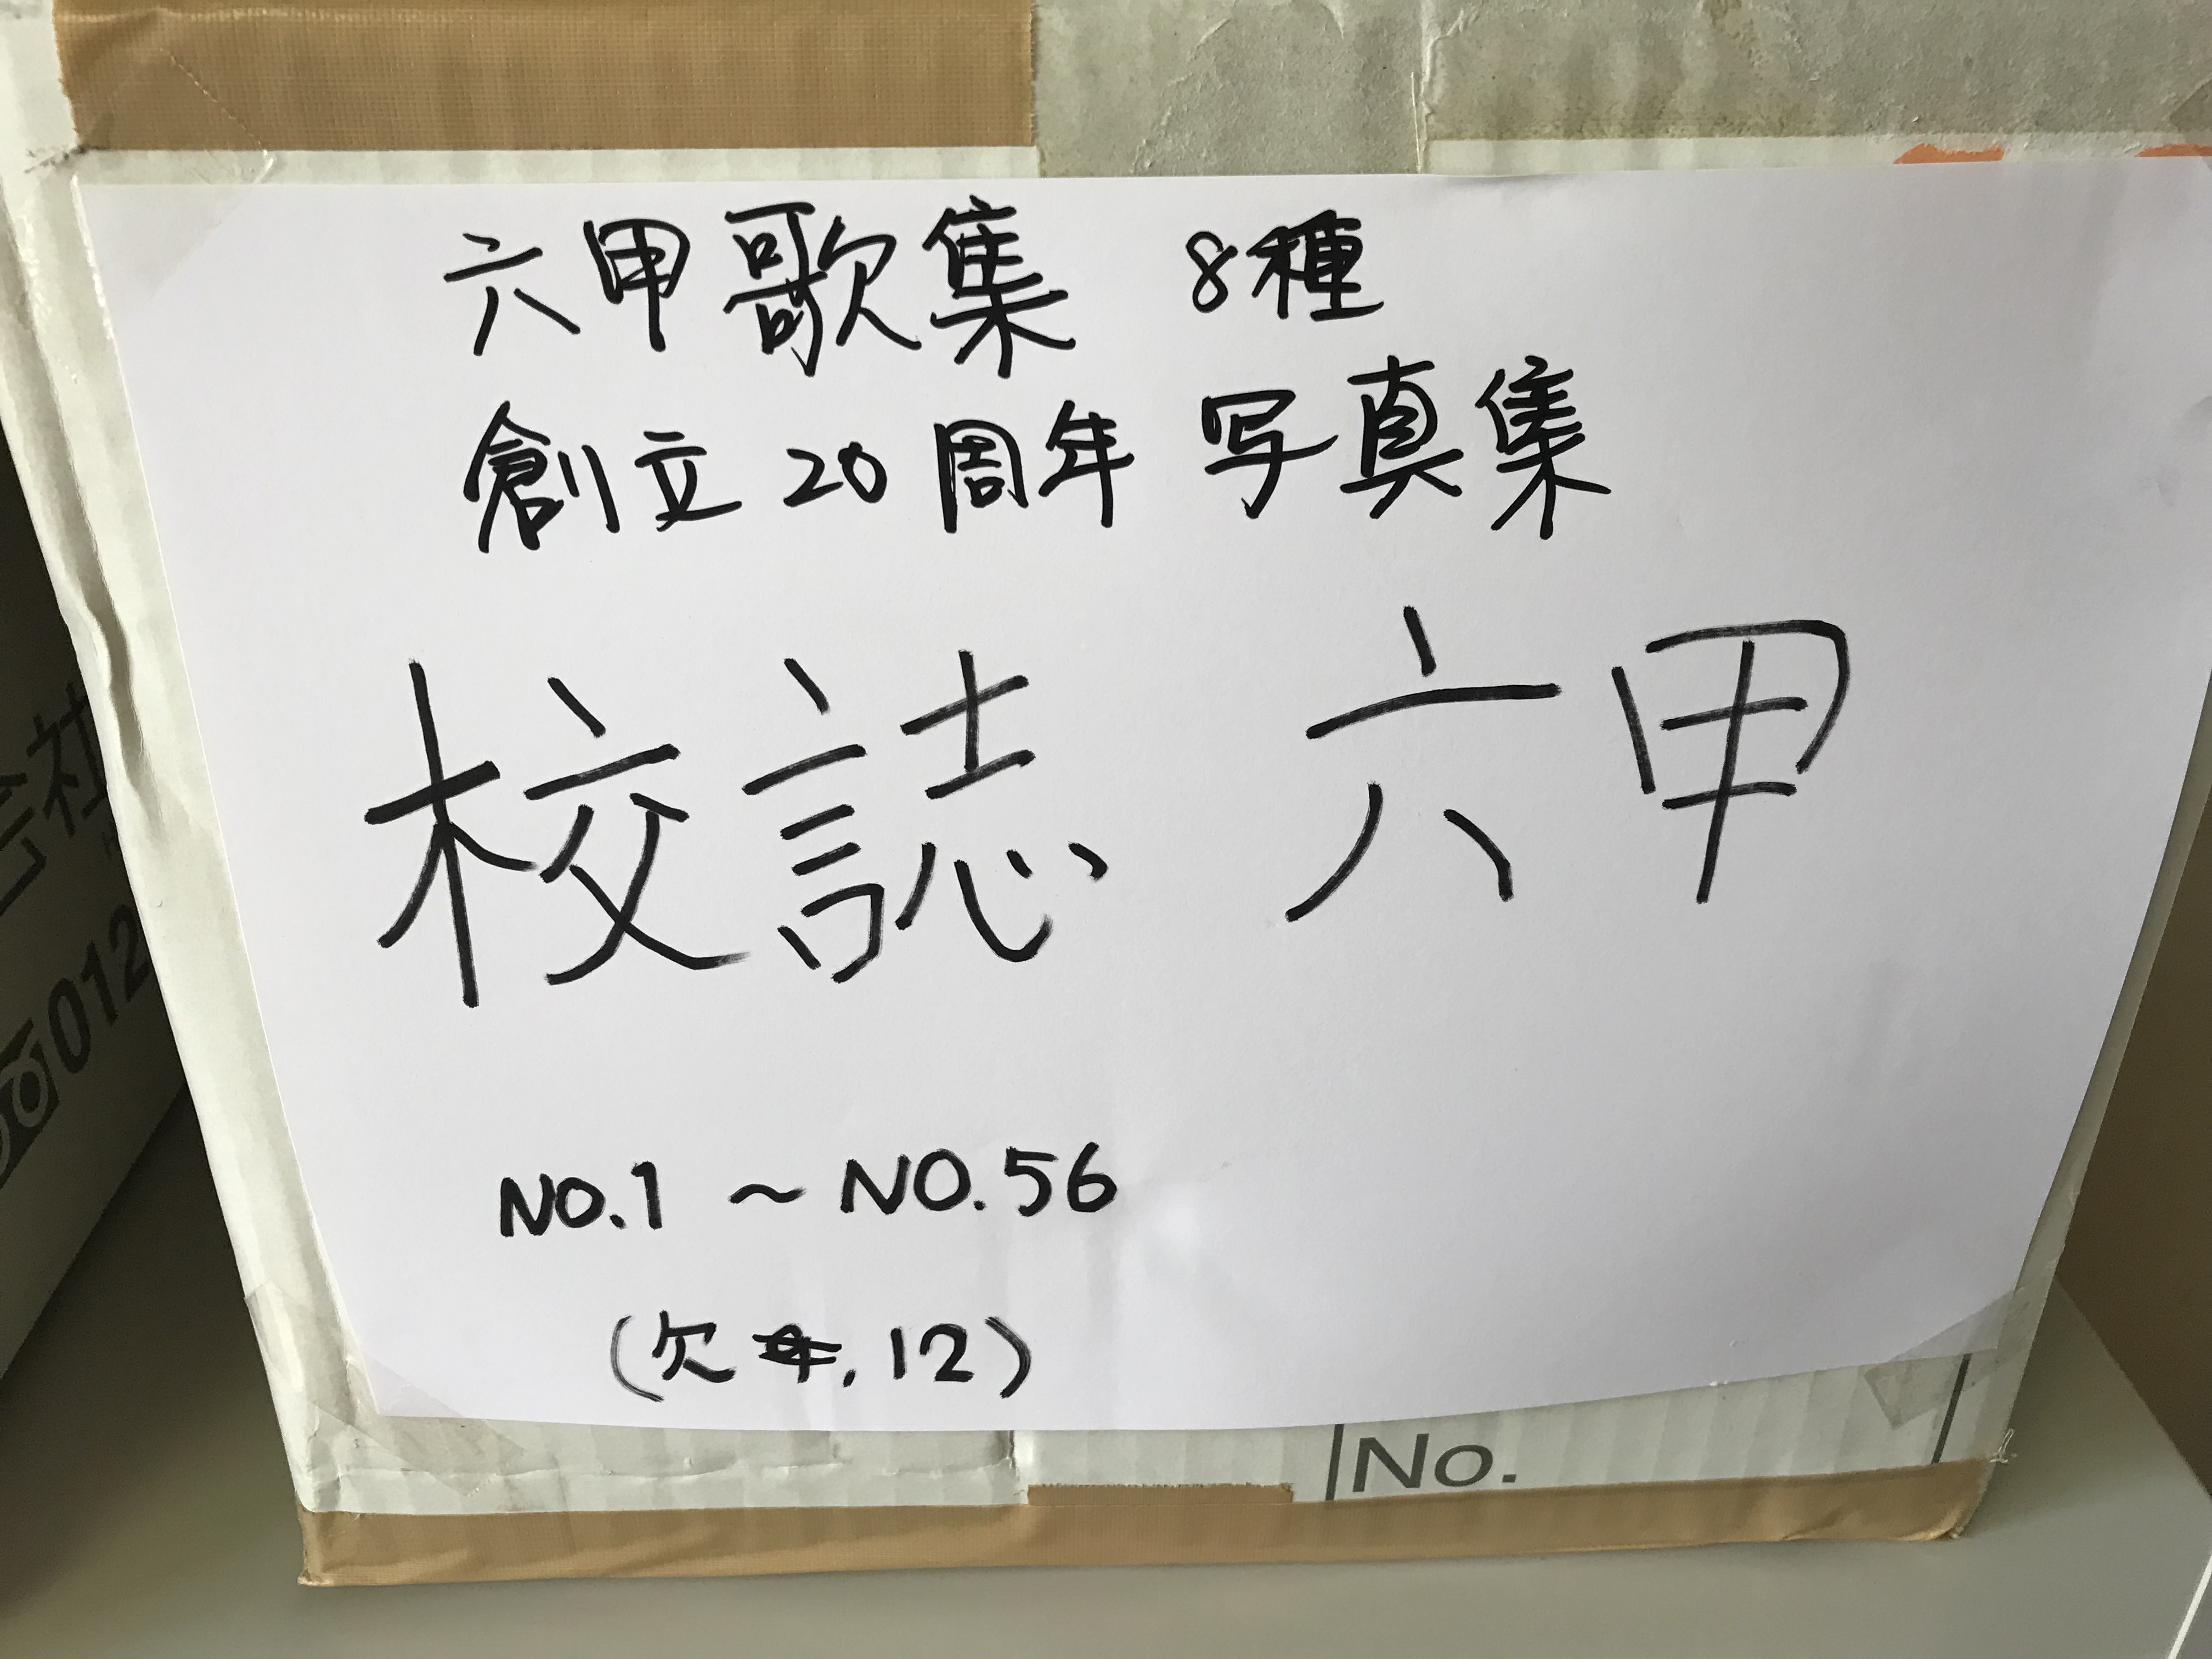 六甲歌集 8種
創立20周年 写真集
校誌 六甲
NO.1 ～ NO.56
(欠 .12)
No.
会社
012